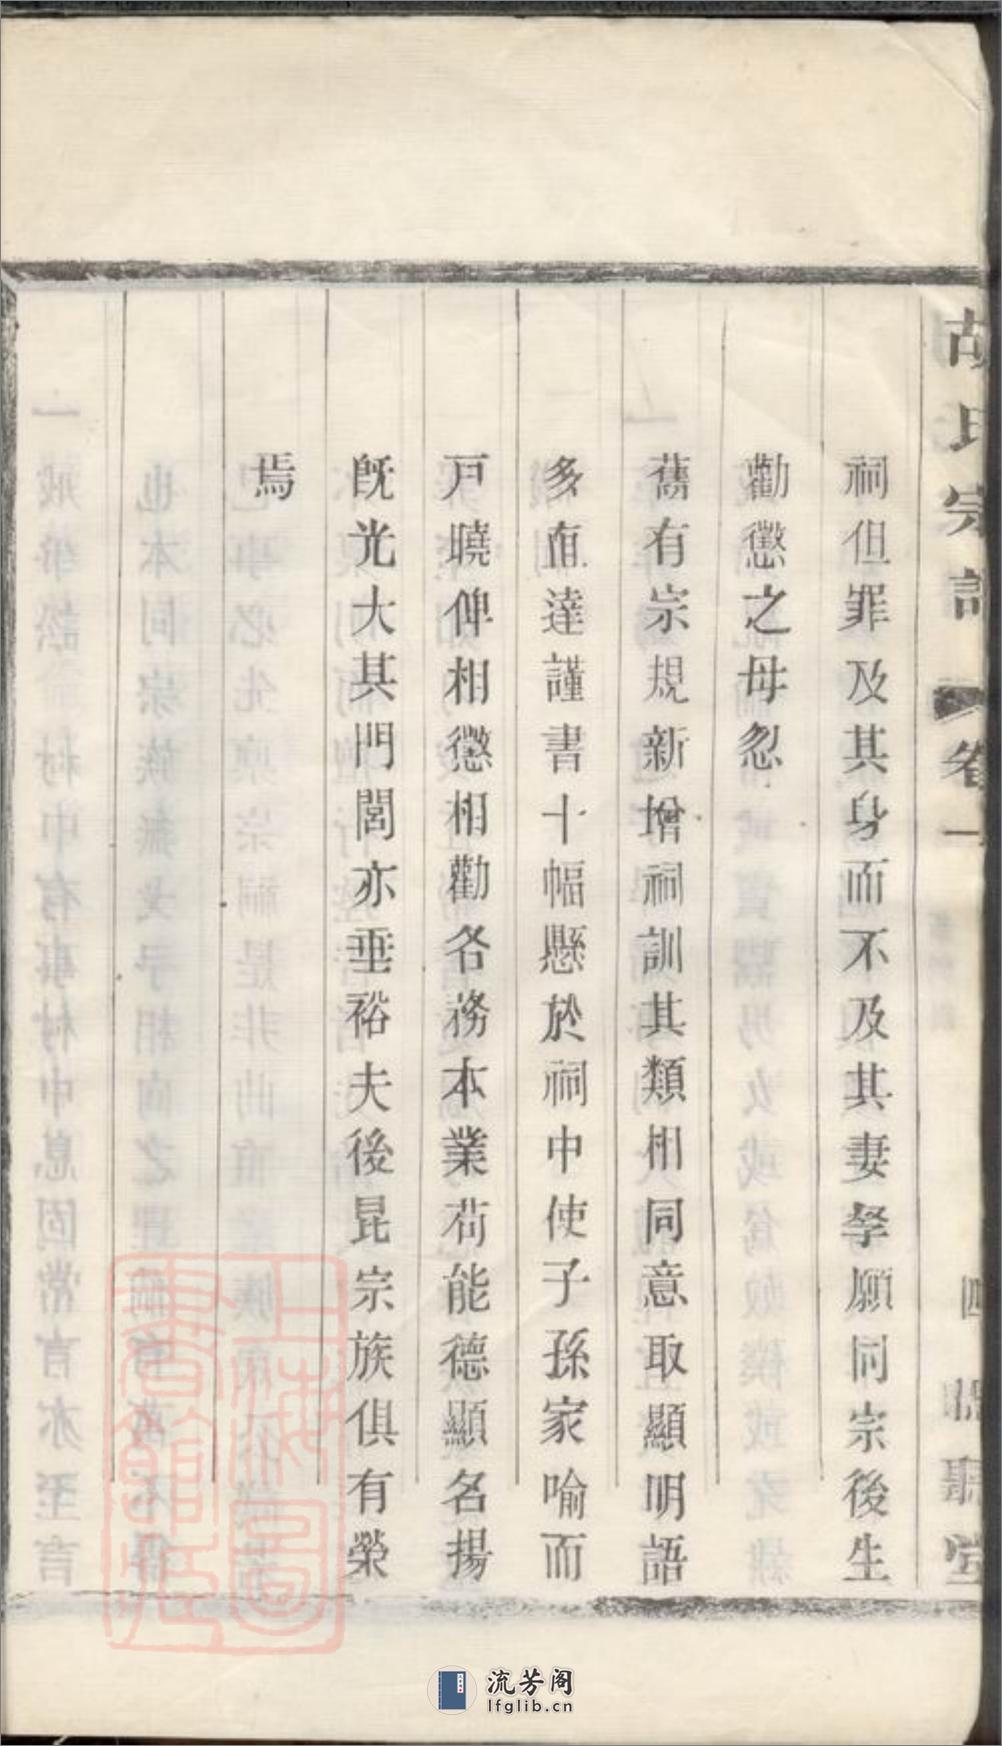 胡氏宗譜
卷一
四
聽堂
祠但罪及其身而不及其妻孥願同宗後生
勸懲之毋忽
舊有宗規新增祠訓其類相同意取顯明語
多直達謹書十幅懸於祠中使子孫家喻而
戸曉俾相懲相勸各務本業苟能德顯名揚
旣光大其門閭亦垂裕夫後昆宗族俱有榮
焉
上海圖書館藏
流芳阁
lfglib.cn